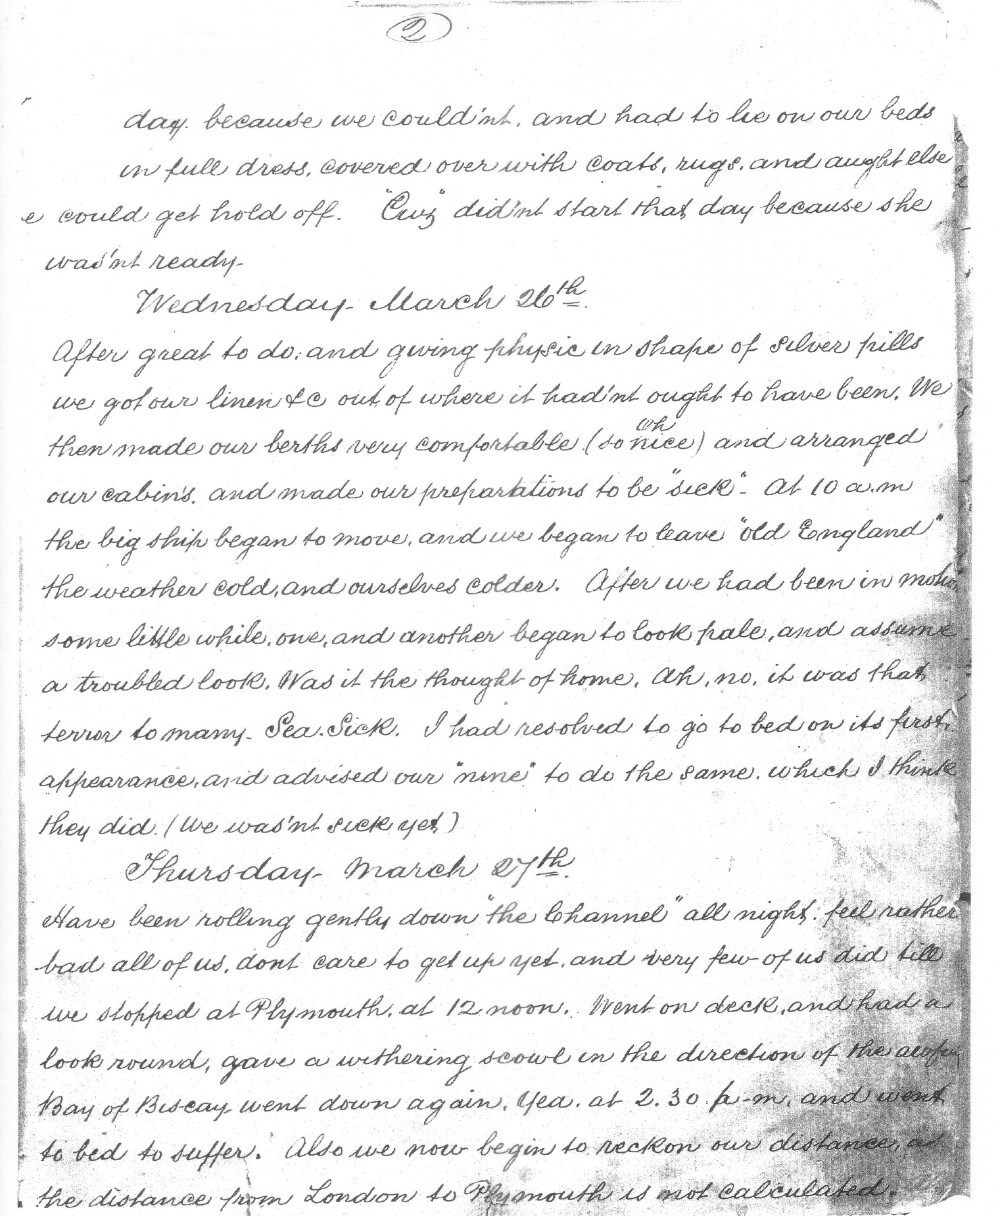 2
day. because we could'nt. and had to lie on our beds
in full dress, covered over with coats, rugs, and aught else
e could get hold off. did'nt start that day because she
was'nt ready-
Wednesday- March 26th.
After great to do, and giving physic in shape of silver pills
we got our linen &c out of where it had'nt ought to have been. We
then made our berths very comfortable (so oh nice) and arranged
our cabin's. and made our preparations to be "sick". At 10 a.m
the big ship began to move, and we began to leave "old England"
the weather cold, and ourselves colder. After we had been in motion
some little while, one, and another began to look pale, and assume
a troubled look. Was it the thought of home. Ah, no, it was that
terror to many- Sea.Sick. I had resolved to go to bed on its first
appearance, and advised our "nine" to do the same. which I think
they did. (We was'nt sick yet)
Thursday- March 27th.
Have been rolling gently down "the Channel" all night. feel rather
bad all of us, dont care to get up yet, and very few of us did till
we stopped at Plymouth, at 12 noon. Went on deck, and had a
look round, gave a withering scowl in the direction of the awful
Bay of Biscay went down again. Yea. at 2.30 p-m, and went
to bed to suffer. Also we now begin to reckon our distance, as
the distance from London to Plymouth is not calculated.